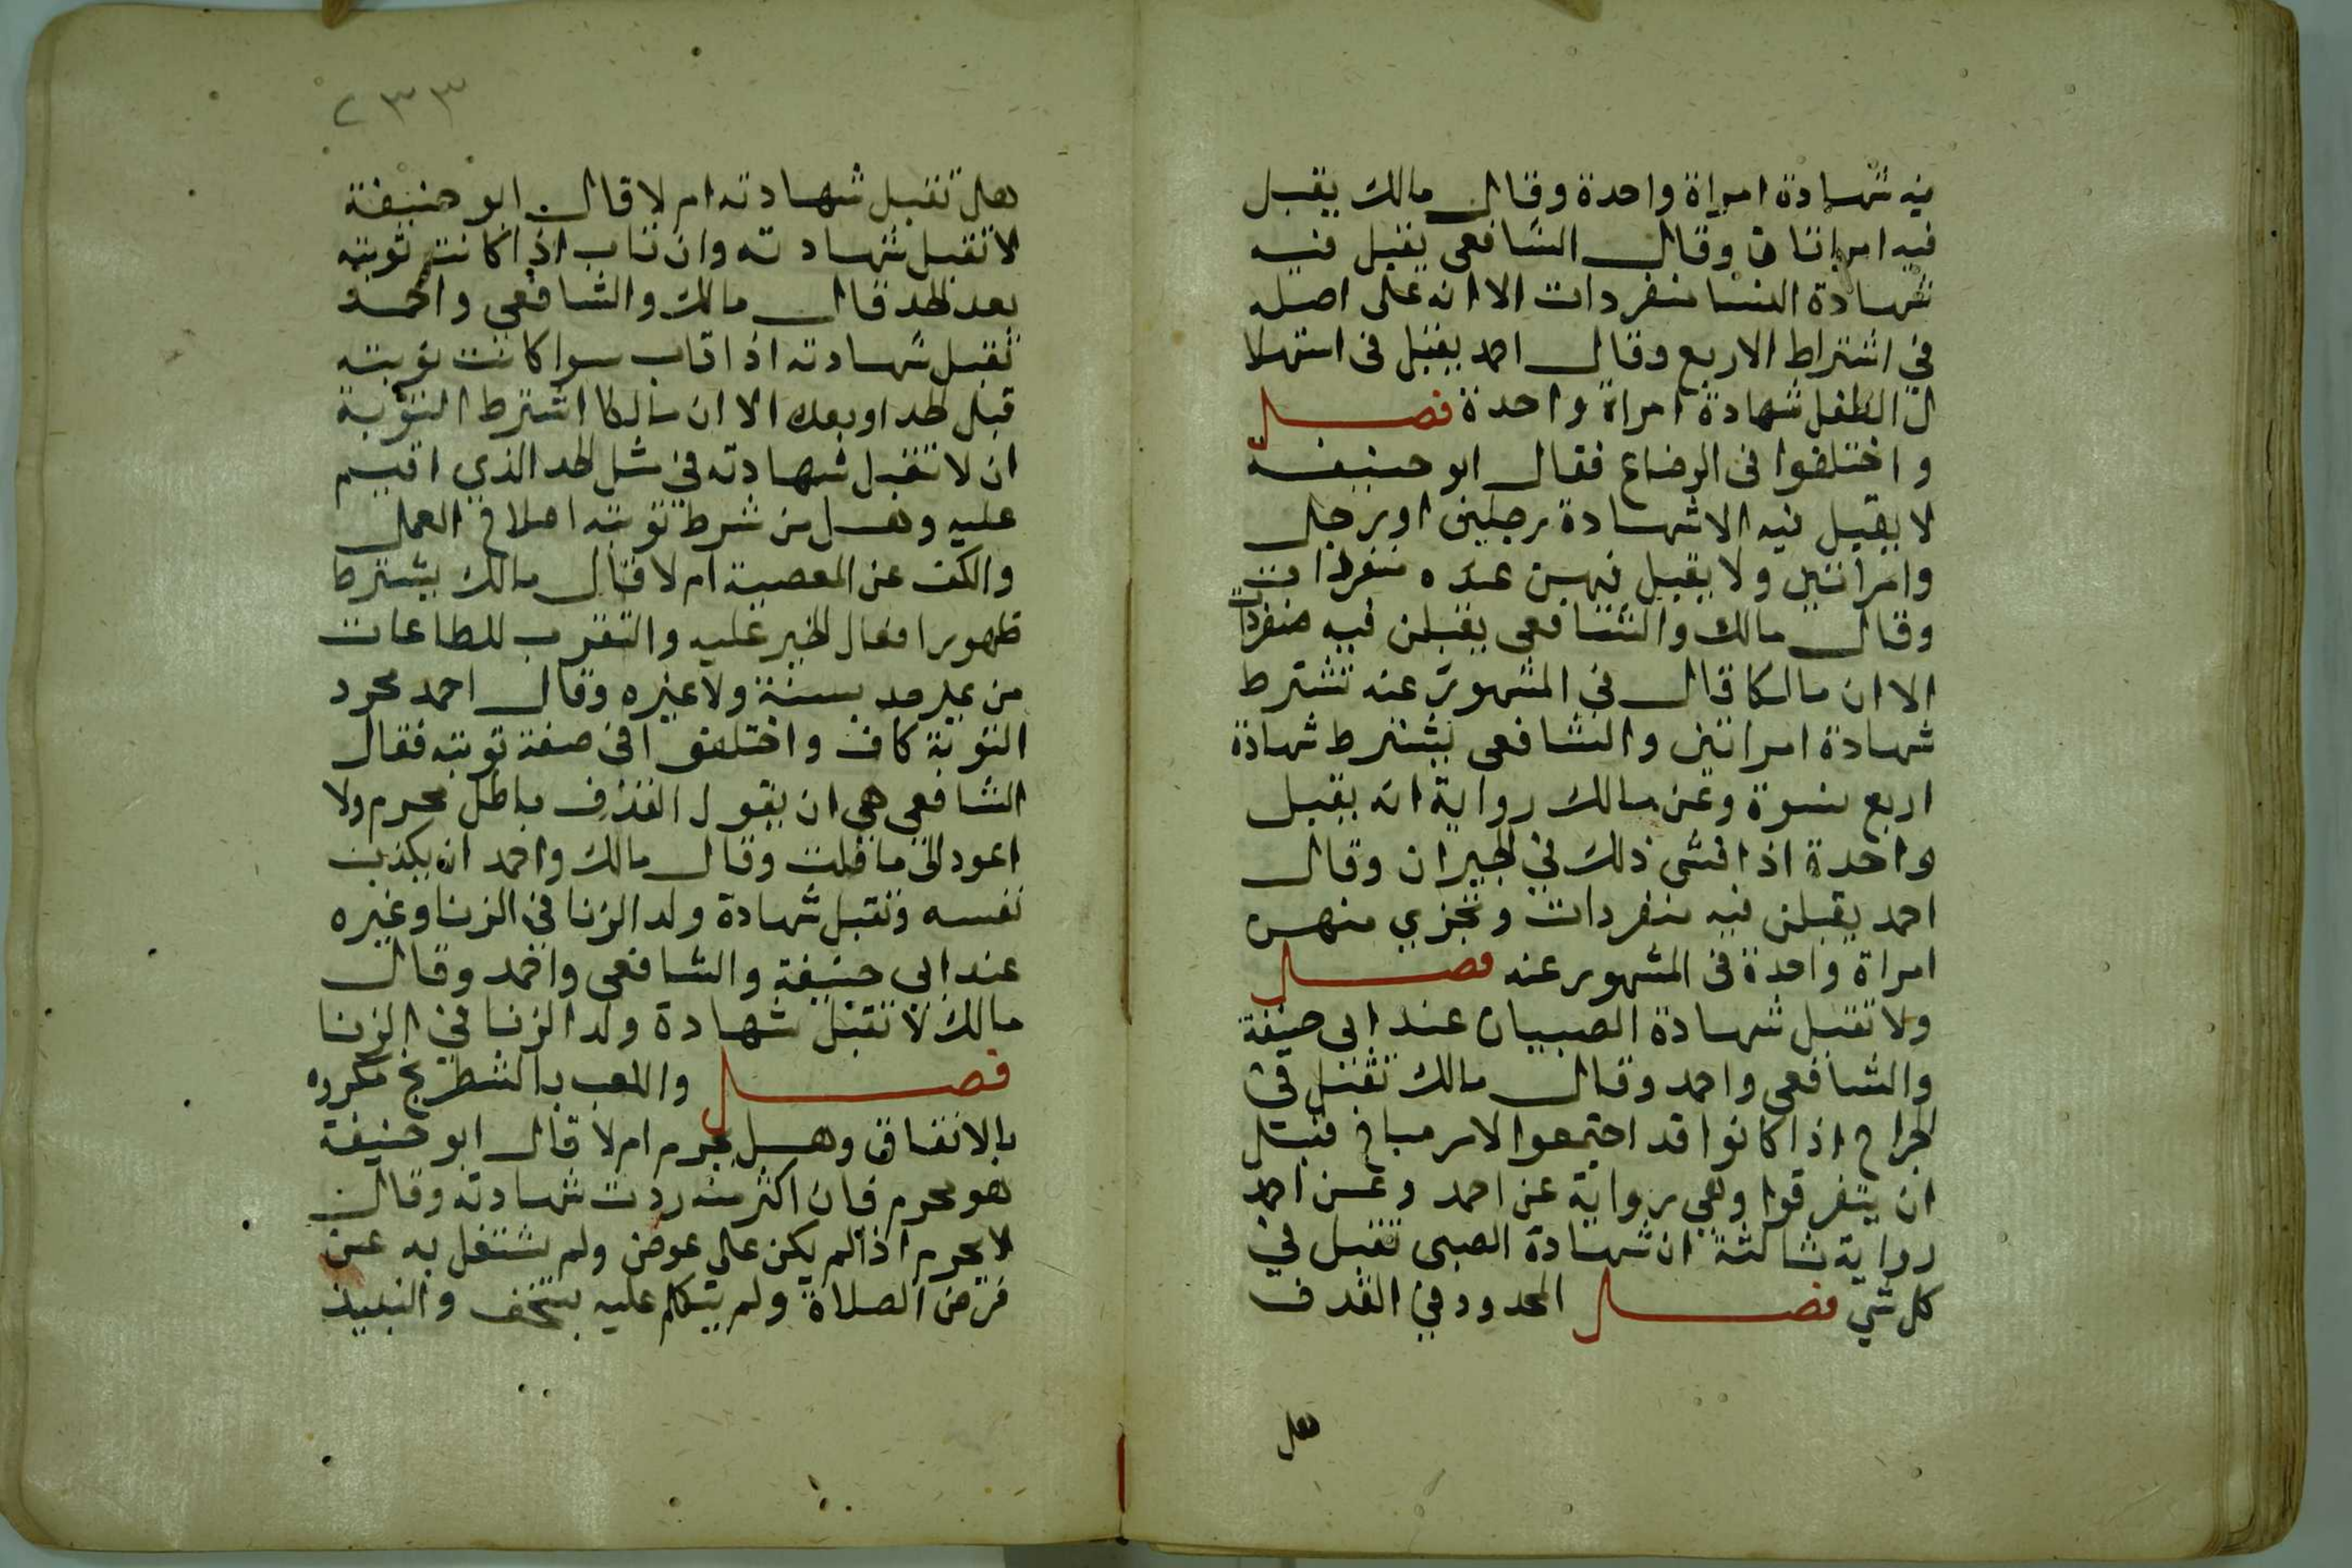 فيه شهادة امراة واحدة وقال مالك يقبل
فيه امراتان وقال الشافعى يقبل فيه
شهادة النسا منفردات الا انه على اصله
في اشتراط الاربع وقال احمد يقبل فى استهلا
ل الطفل شهادة امراة واحدة فصل
واختلفوا فى الرضاع فقال ابو حنيفة
لا يقبل فيه الا شهادة رجلين او رجل
وامراتين ولا يقبل فيهن عنده منفردات
وقال مالك والشافعى يقبلن فيه منفردات
الا ان مالكا قال في المشهور عنه تشترط
شهادة امراتين والشافعى يشترط شهادة
اربع نسوة وعن مالك رواية انه يقبل
واحدة اذا فشى ذلك في الجيران وقال
احمد يقبلن فيه منفردات وتجزي منهن
امراة واحدة فى المشهور عنه فصل
ولا تقبل شهادة الصبيان عند ابى حنيفة
والشافعى واحمد وقال مالك تقبل في
الجراح اذا كانوا قد اجتمعوا لامر مباح قبل
ان يتفرقوا وهي رواية عن احمد وعن احمد
رواية ثالثة ان شهادة الصبى تقبل في
كل شي فصل المحدود في القدف
هل
٢٣٣
هل تقبل شهادته ام لا قال ابو حنيفة
لا تقبل شهادته وان تاب اذا كانت توبته
بعد الحد قال مالك والشافعي واحمد
تقبل شهادته اذا تاب سوا كانت توبته
قبل الحد او بعده الا ان مالكا اشترط التوبة
ان لا تقبل شهادته في مثل الحد الذي اقيم
عليه وهل من شرط توبته اصلاح العمل
والكف عن المعصية ام لا قال مالك يشترط
ظهور افعال الخير عليه والتقرب للطاعات
من غير حد بسنة ولا غيره وقال احمد مجرد
التوبة كاف واختلفوا فى صفة توبته فقال
الشافعي هي ان يقول القذف باطل محرم ولا
اعود الى ما قلت وقال مالك واحمد ان يكذب
نفسه وتقبل شهادة ولد الزنا في الزنا وغيره
عند ابي حنيفة والشافعى واحمد وقال
مالك لا تقبل شهادة ولد الزنا في الزنا
فصل واللعب بالشطرنج مكروه
بالاتفاق وهل يحرم ام لا قال ابو حنيفة
هو محرم فان اكثر منه ردت شهادته وقال
لا يحرم اذا لم يكن على عوض ولم يشتغل به عن
فرض الصلاة ولم يتكلم عليه بسخف والنبيذ